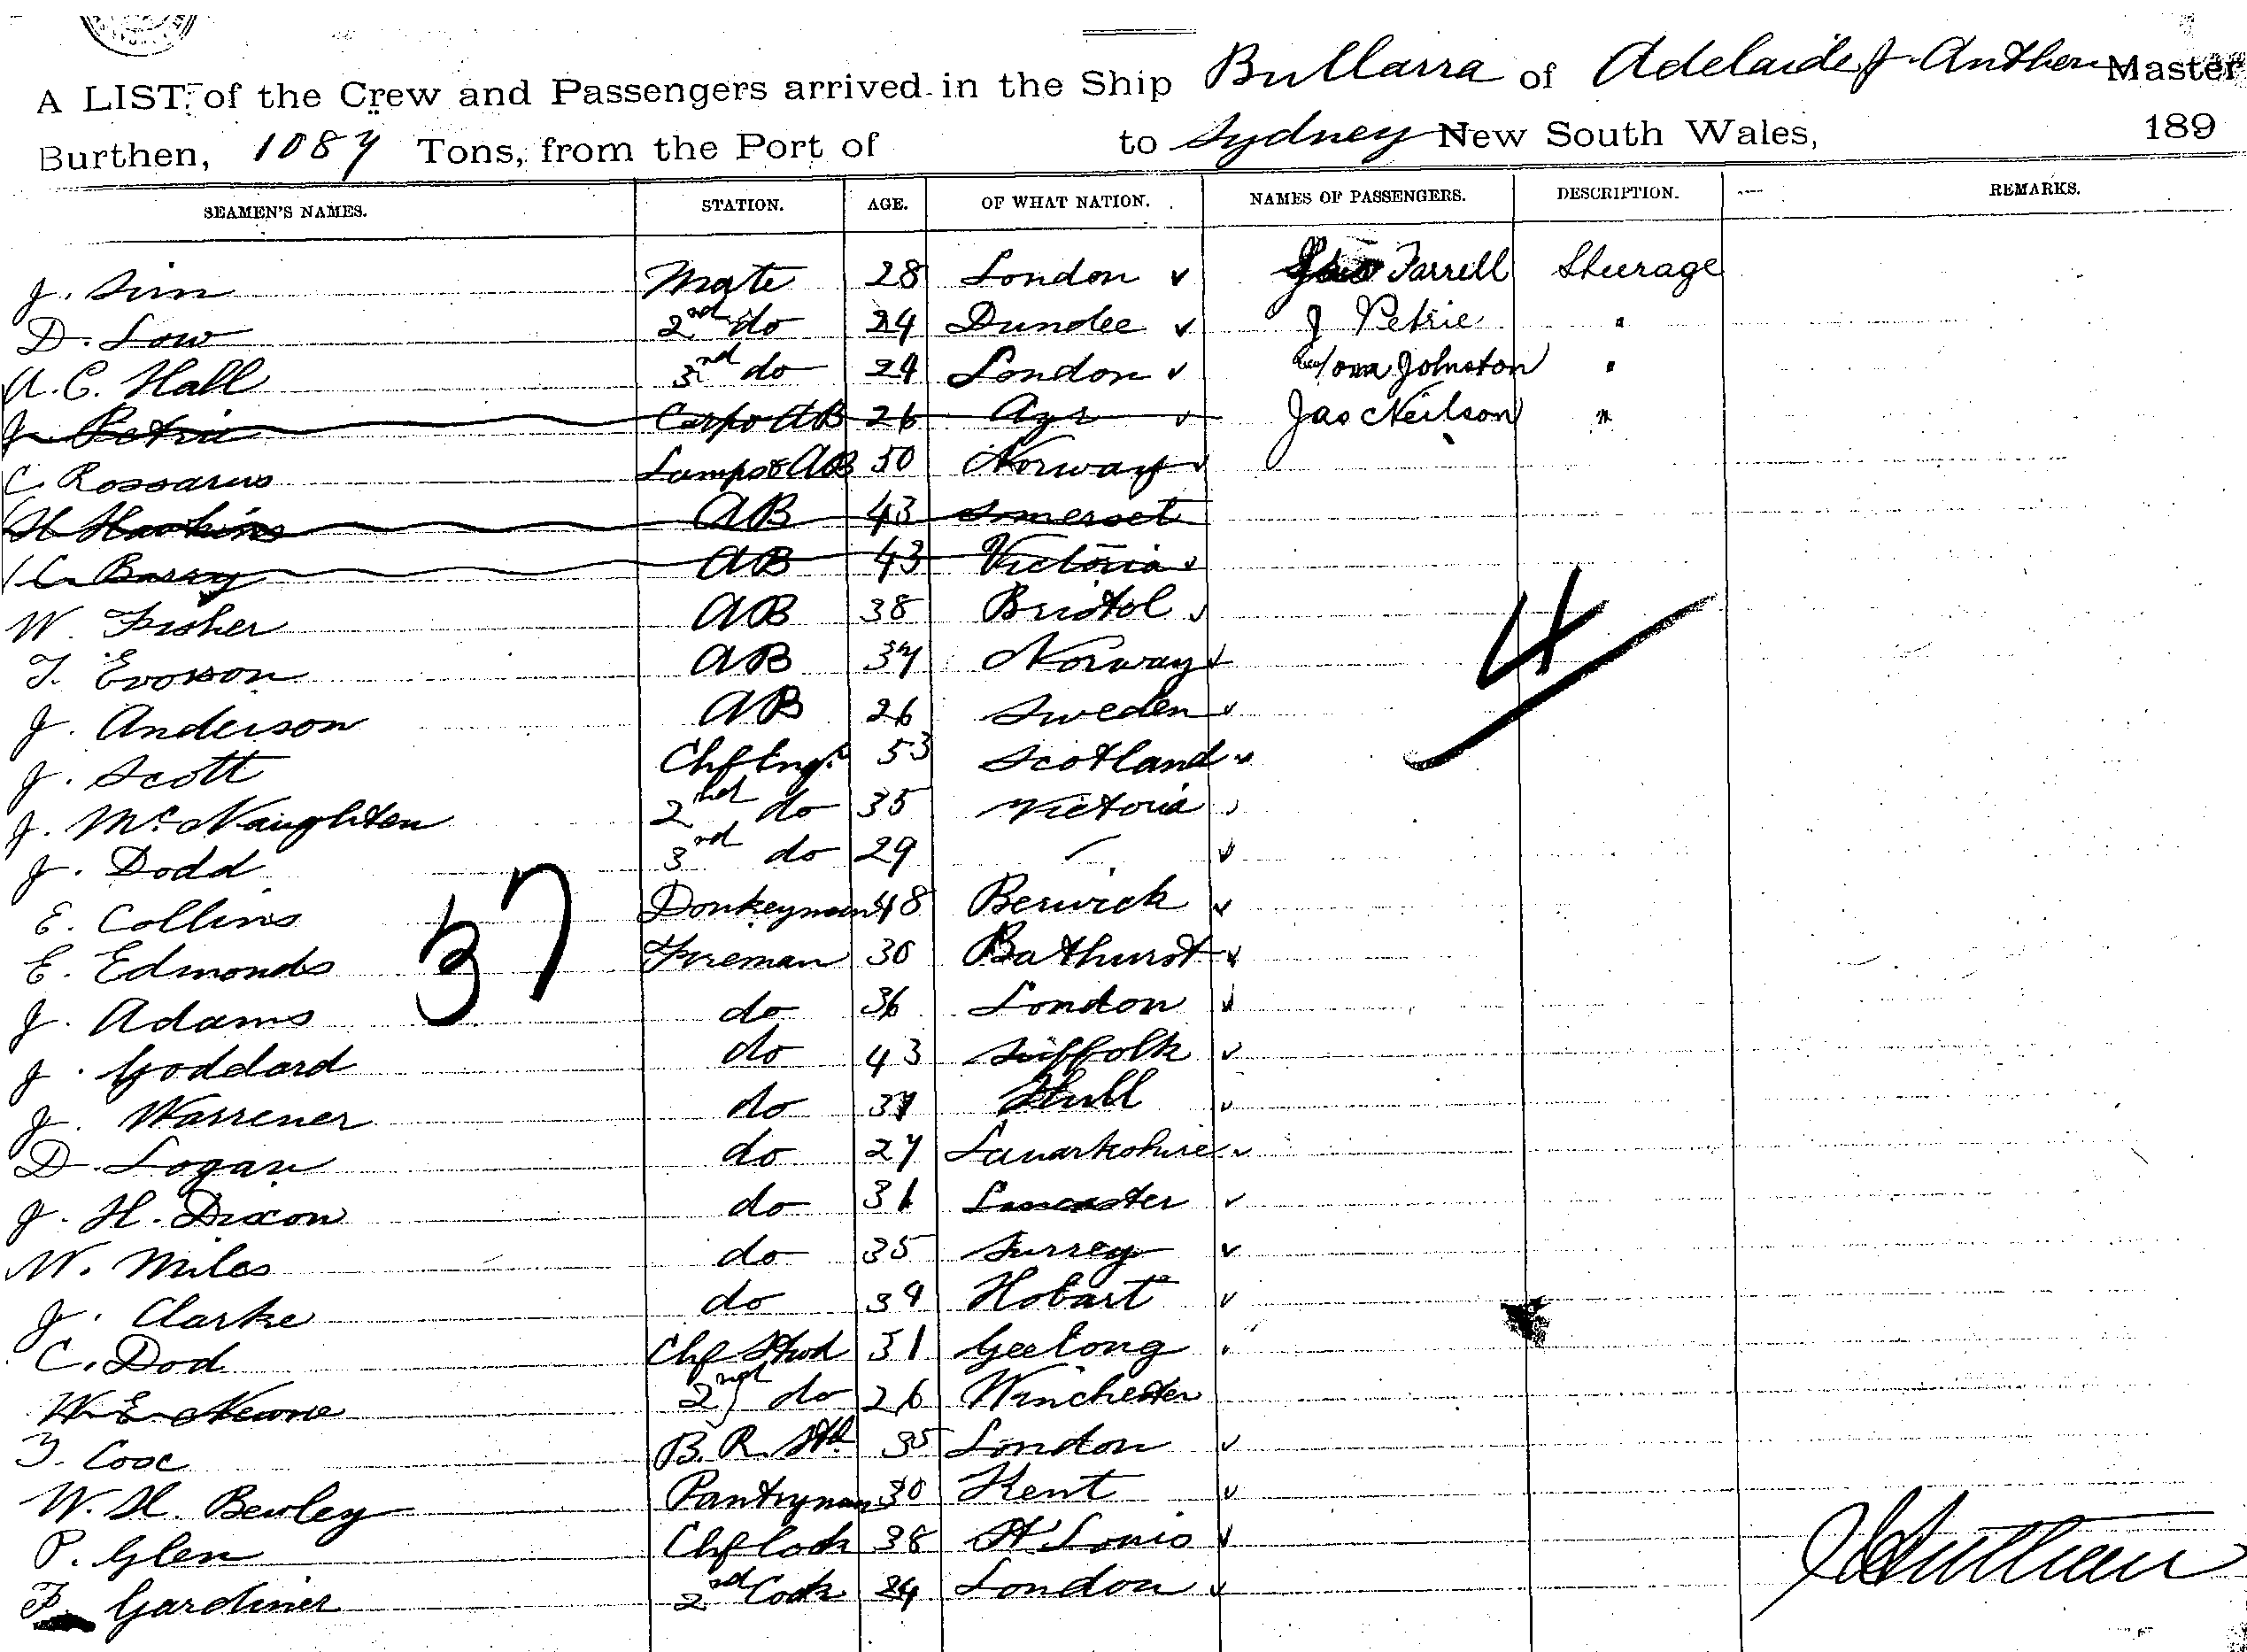 A LIST of the Crew and Passengers arrived in the Ship Bullarra of Adelaide J. Anthon Master
Burthen, 1087 Tons, from the Port of to Sydney New South Wales, 189
SEAMEN'S NAMES. STATION. AGE. OF WHAT NATION. NAMES OF PASSENGERS. DESCRIPTION. REMARKS.
J. Sim Mate 28 London Farrell Steerage
D. Low 2nd do 24 Dundee J Petrie "
A. C. Hall 3rd do 24 London Johnston "
J. Petrie Carpr AB 26 Ayr Jas Neilson "
C. Rossarus Lamps & AB 50 Norway
H Hawkins AB 43 Somerset
C. Barry AB 43 Victoria
W. Fisher AB 38 Bristol
T. Evonson AB 37 Norway
4
J. Anderson AB 26 Sweden
J. Scott Chf Engr 53 Scotland
J. McNaughten 2nd do 35 Victoria
J. Dodd 3rd do 29
E. Collins Donkeyman 48 Berwick
37
E. Edmonds Fireman 30 Bathurst
J. Adams do 36 London
J. Goddard do 43 Suffolk
J. Warrener do 37 Hull
D. Logan do 27 Lanarkshire
J. H. Dixon do 31 Lancaster
W. Miles do 35 Surrey
J. Clarke do 34 Hobart
C. Dod Chf Stwd 31 Geelong
W. E. Newne 2nd do 26 Winchester
T. Coxe B. R. Std 35 London
W. H. Bewley Pantryman 30 Kent
P. Glen Chf Cook 38 St Louis
F. Gardiner 2nd Cook 24 London